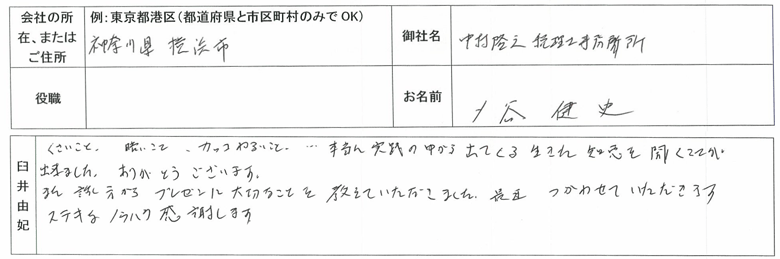 会社の所在、またはご住所
例：東京都港区（都道府県と市区町村のみでOK）
神奈川県 横浜市
御社名
中村 税理士事務所
役職
お名前
谷 健史
臼井由妃
くさいこと、暗いこと、カッコわるいこと、… 実践の中から出てくる生きた知恵を聞くことが
出来ました。ありがとうございます。
また 話し方から プレゼンに大切なことを 教えていただきました。是非 つかわせていただきます
ステキな ノウハウ 感謝します